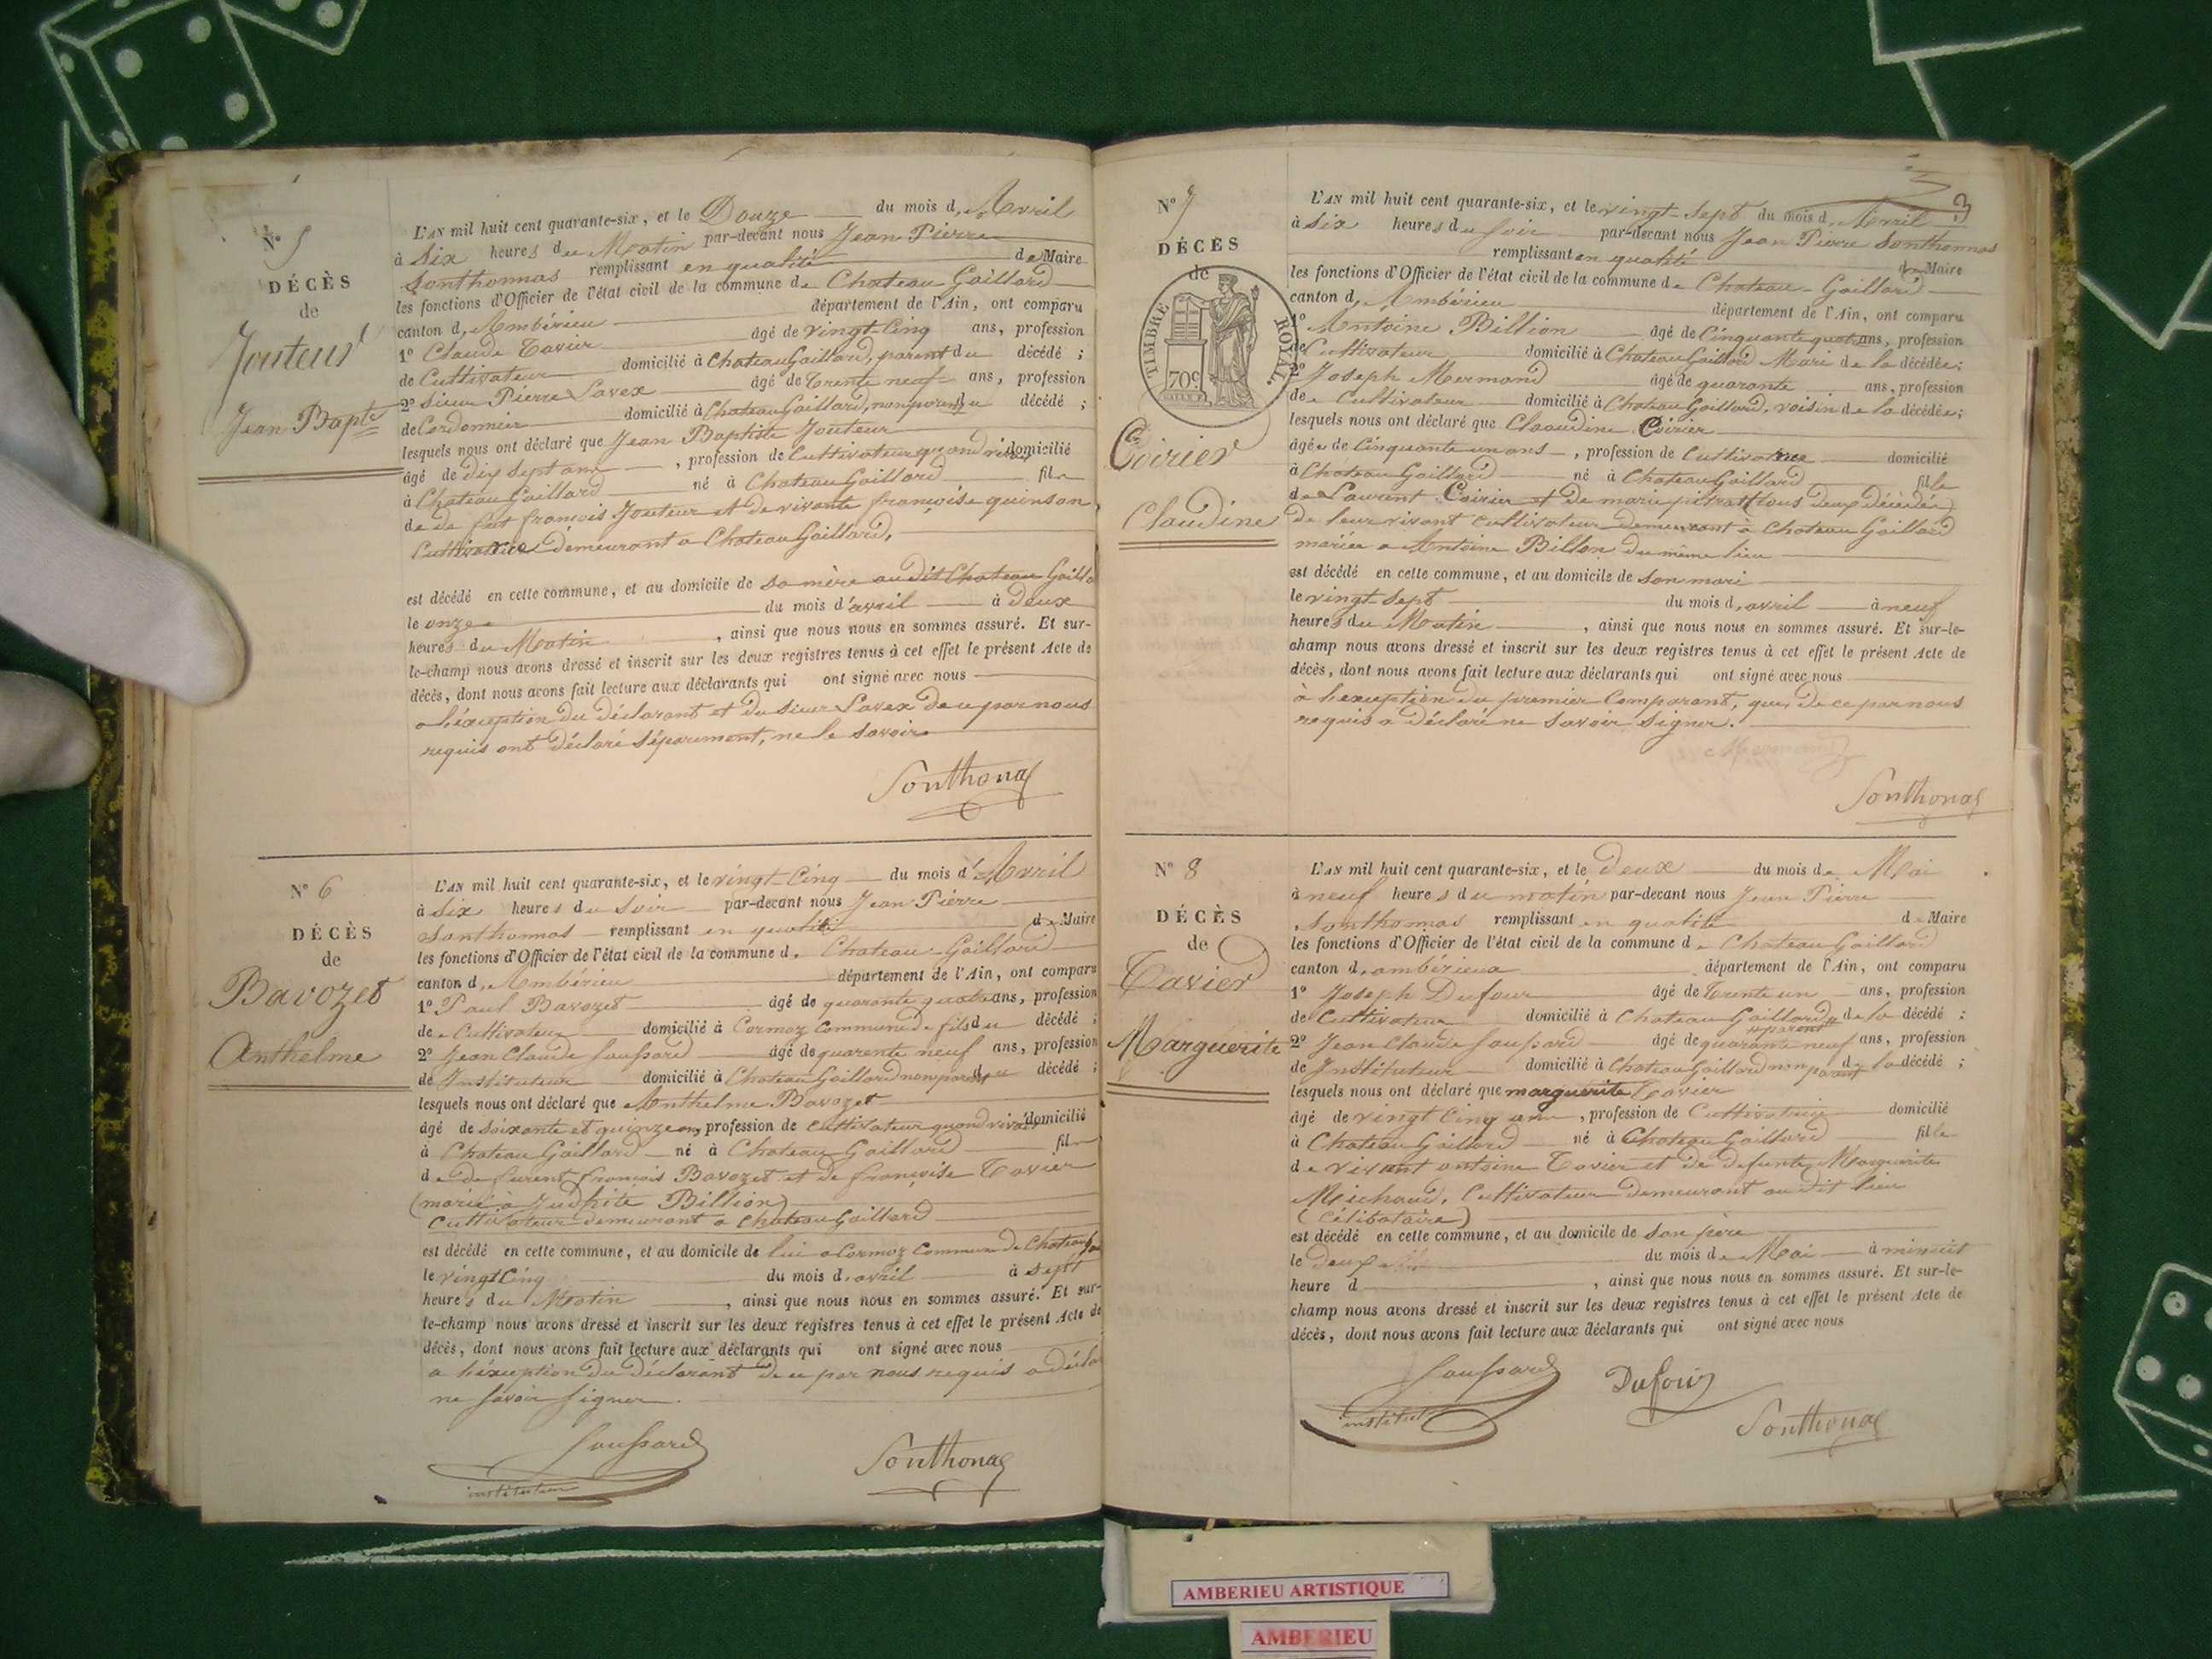 N° 5
DÉCÈS
de
Jouteur
Jean Bapte
L'AN mil huit cent quarante-six, et le Douze du mois d'Avril
à Six heures du Matin par-devant nous Jean Pierre
Sonthonnas remplissant en qualité de Maire
les fonctions d'Officier de l'état civil de la commune de Chateau Gaillard
canton d'Ambérieu département de l'Ain, ont comparu
1° Claude Tavier âgé de vingt-Cinq ans, profession
de Cultivateur domicilié à Chateau Gaillard, parent du décédé ;
2° Sieur Pierre Lavex âgé de trente neuf ans, profession
de Cordonnier domicilié à Chateau Gaillard, non parent du décédé ;
lesquels nous ont déclaré que Jean Baptiste Jouteur
âgé de dix sept ans, profession de Cultivateur quand vivait domicilié
à Chateau Gaillard né à Chateau Gaillard fils
de de feu françois Jouteur et de vivante françoise quinson
Cultivatrice demeurant a Chateau Gaillard,
est décédé en cette commune, et au domicile de sa mère au dit Chateau Gailla
le onze du mois d'avril à deux
heures du Matin, ainsi que nous nous en sommes assuré. Et sur-
le-champ nous avons dressé et inscrit sur les deux registres tenus à cet effet le présent Acte de
décès, dont nous avons fait lecture aux déclarants qui ont signé avec nous
a l'éxception du déclarant et du sieur Lavex de ce par nous
requis ont déclaré séparément, ne le savoir
Sonthonas
N° 6
DÉCÈS
de
Bavozet
Anthelme
L'AN mil huit cent quarante-six, et le vingt-Cinq du mois d'Avril
à Six heures du Soir par-devant nous Jean Pierre
Sonthonnas remplissant en qualité de Maire
les fonctions d'Officier de l'état civil de la commune de Chateau-Gaillard
canton d'Ambérieu département de l'Ain, ont comparu
1° Paul Bavozet âgé de quarante quatre ans, profession
de Cultivateur domicilié à Cormoz Commune de fils du décédé ;
2° Jean Claude Soussard âgé de quarente neuf ans, profession
de Instituteur domicilié à Chateau Gaillard non parent du décédé ;
lesquels nous ont déclaré que Anthelme Bavozet
âgé de soixante et quinze ans, profession de cultivateur quand vivait domicilié
à Chateau Gaillard né à Chateau Gaillard fils
de françois Bavozet et de françoise Tavier
(marié à Judhite Billion)
Cultivateur demeurant a chateau Gaillard
est décédé en cette commune, et au domicile de lui a Cormoz Commune de Chateau
le vingt Cinq du mois d'avril à sept
heures du Matin, ainsi que nous nous en sommes assuré. Et sur-
le-champ nous avons dressé et inscrit sur les deux registres tenus à cet effet le présent Acte de
décès, dont nous avons fait lecture aux déclarants qui ont signé avec nous
a l'éxception du déclarant de ce par nous requis a décla
ne savoir signer.
Soussard
instituteur
Sonthonas
3
N° 7
DÉCÈS
de
TIMBRE ROYAL.
70c
Coirier
Claudine
L'AN mil huit cent quarante-six, et le vingt-Sept du mois d'Avril
à Six heures du Soir par-devant nous Jean Pierre Sonthonnas
remplissant en qualité de Maire
les fonctions d'Officier de l'état civil de la commune de Chateau-Gaillard
canton d'Ambérieu département de l'Ain, ont comparu
1° Antoine Billion âgé de Cinquante quatre ans, profession
de Cultivateur domicilié à Chateau Gaillard Mari de la décédée ;
2° Joseph Mermand âgé de quarante ans, profession
de Cultivateur domicilié à Chateau Gaillard, voisin de la décédée ;
lesquels nous ont déclaré que Claudine Coirier
âgée de Cinquante un ans, profession de Cultivatrice domicilié
à Chateau Gaillard né à Chateau Gaillard fille
de Laurent Coirier et de marie pitrat (tous deux décédés)
de leur vivant cultivateur demeurant à Chateau Gaillard
mariée a Antoine Billon du même lieu
est décédé en cette commune, et au domicile de son mari
le vingt-Sept du mois d'avril à neuf
heures du Matin, ainsi que nous nous en sommes assuré. Et sur-le-
champ nous avons dressé et inscrit sur les deux registres tenus à cet effet le présent Acte de
décès, dont nous avons fait lecture aux déclarants qui ont signé avec nous
à l'exception du premier Comparant, que, de ce par nous
requis a déclaré ne savoir signer.
Mermand
Sonthonas
N° 8
DÉCÈS
de
Tavier
Marguerite
L'AN mil huit cent quarante-six, et le Deux du mois de Mai
à neuf heures du matin par-devant nous Jean Pierre
Sonthonnas remplissant en qualité de Maire
les fonctions d'Officier de l'état civil de la commune de Chateau Gaillard
canton d'ambérieux département de l'Ain, ont comparu
1° Joseph Dufour âgé de trente un ans, profession
de Cultivateur domicilié à Chateau Gaillard parent de la décédé ;
2° Jean Claude Soussard âgé de quarante neuf ans, profession
de Instituteur domicilié à Chateau Gaillard non parent de la décédé ;
lesquels nous ont déclaré que marguerite Tavier
âgé de vingt Cinq ans, profession de Cultivatrice domicilié
à Chateau Gaillard né à Chateau Gaillard fille
de vivant antoine Tavier et de defunte Marguerite
Michaud, Cultivateur demeurant au dit lieu
(célibataire)
est décédé en cette commune, et au domicile de son père
le deux du mois de Mai à minuit
heure d , ainsi que nous nous en sommes assuré. Et sur-le-
champ nous avons dressé et inscrit sur les deux registres tenus à cet effet le présent Acte de
décès, dont nous avons fait lecture aux déclarants qui ont signé avec nous
Soussard
institut
Dufour
Sonthonas
AMBERIEU ARTISTIQUE
AMBERIEU